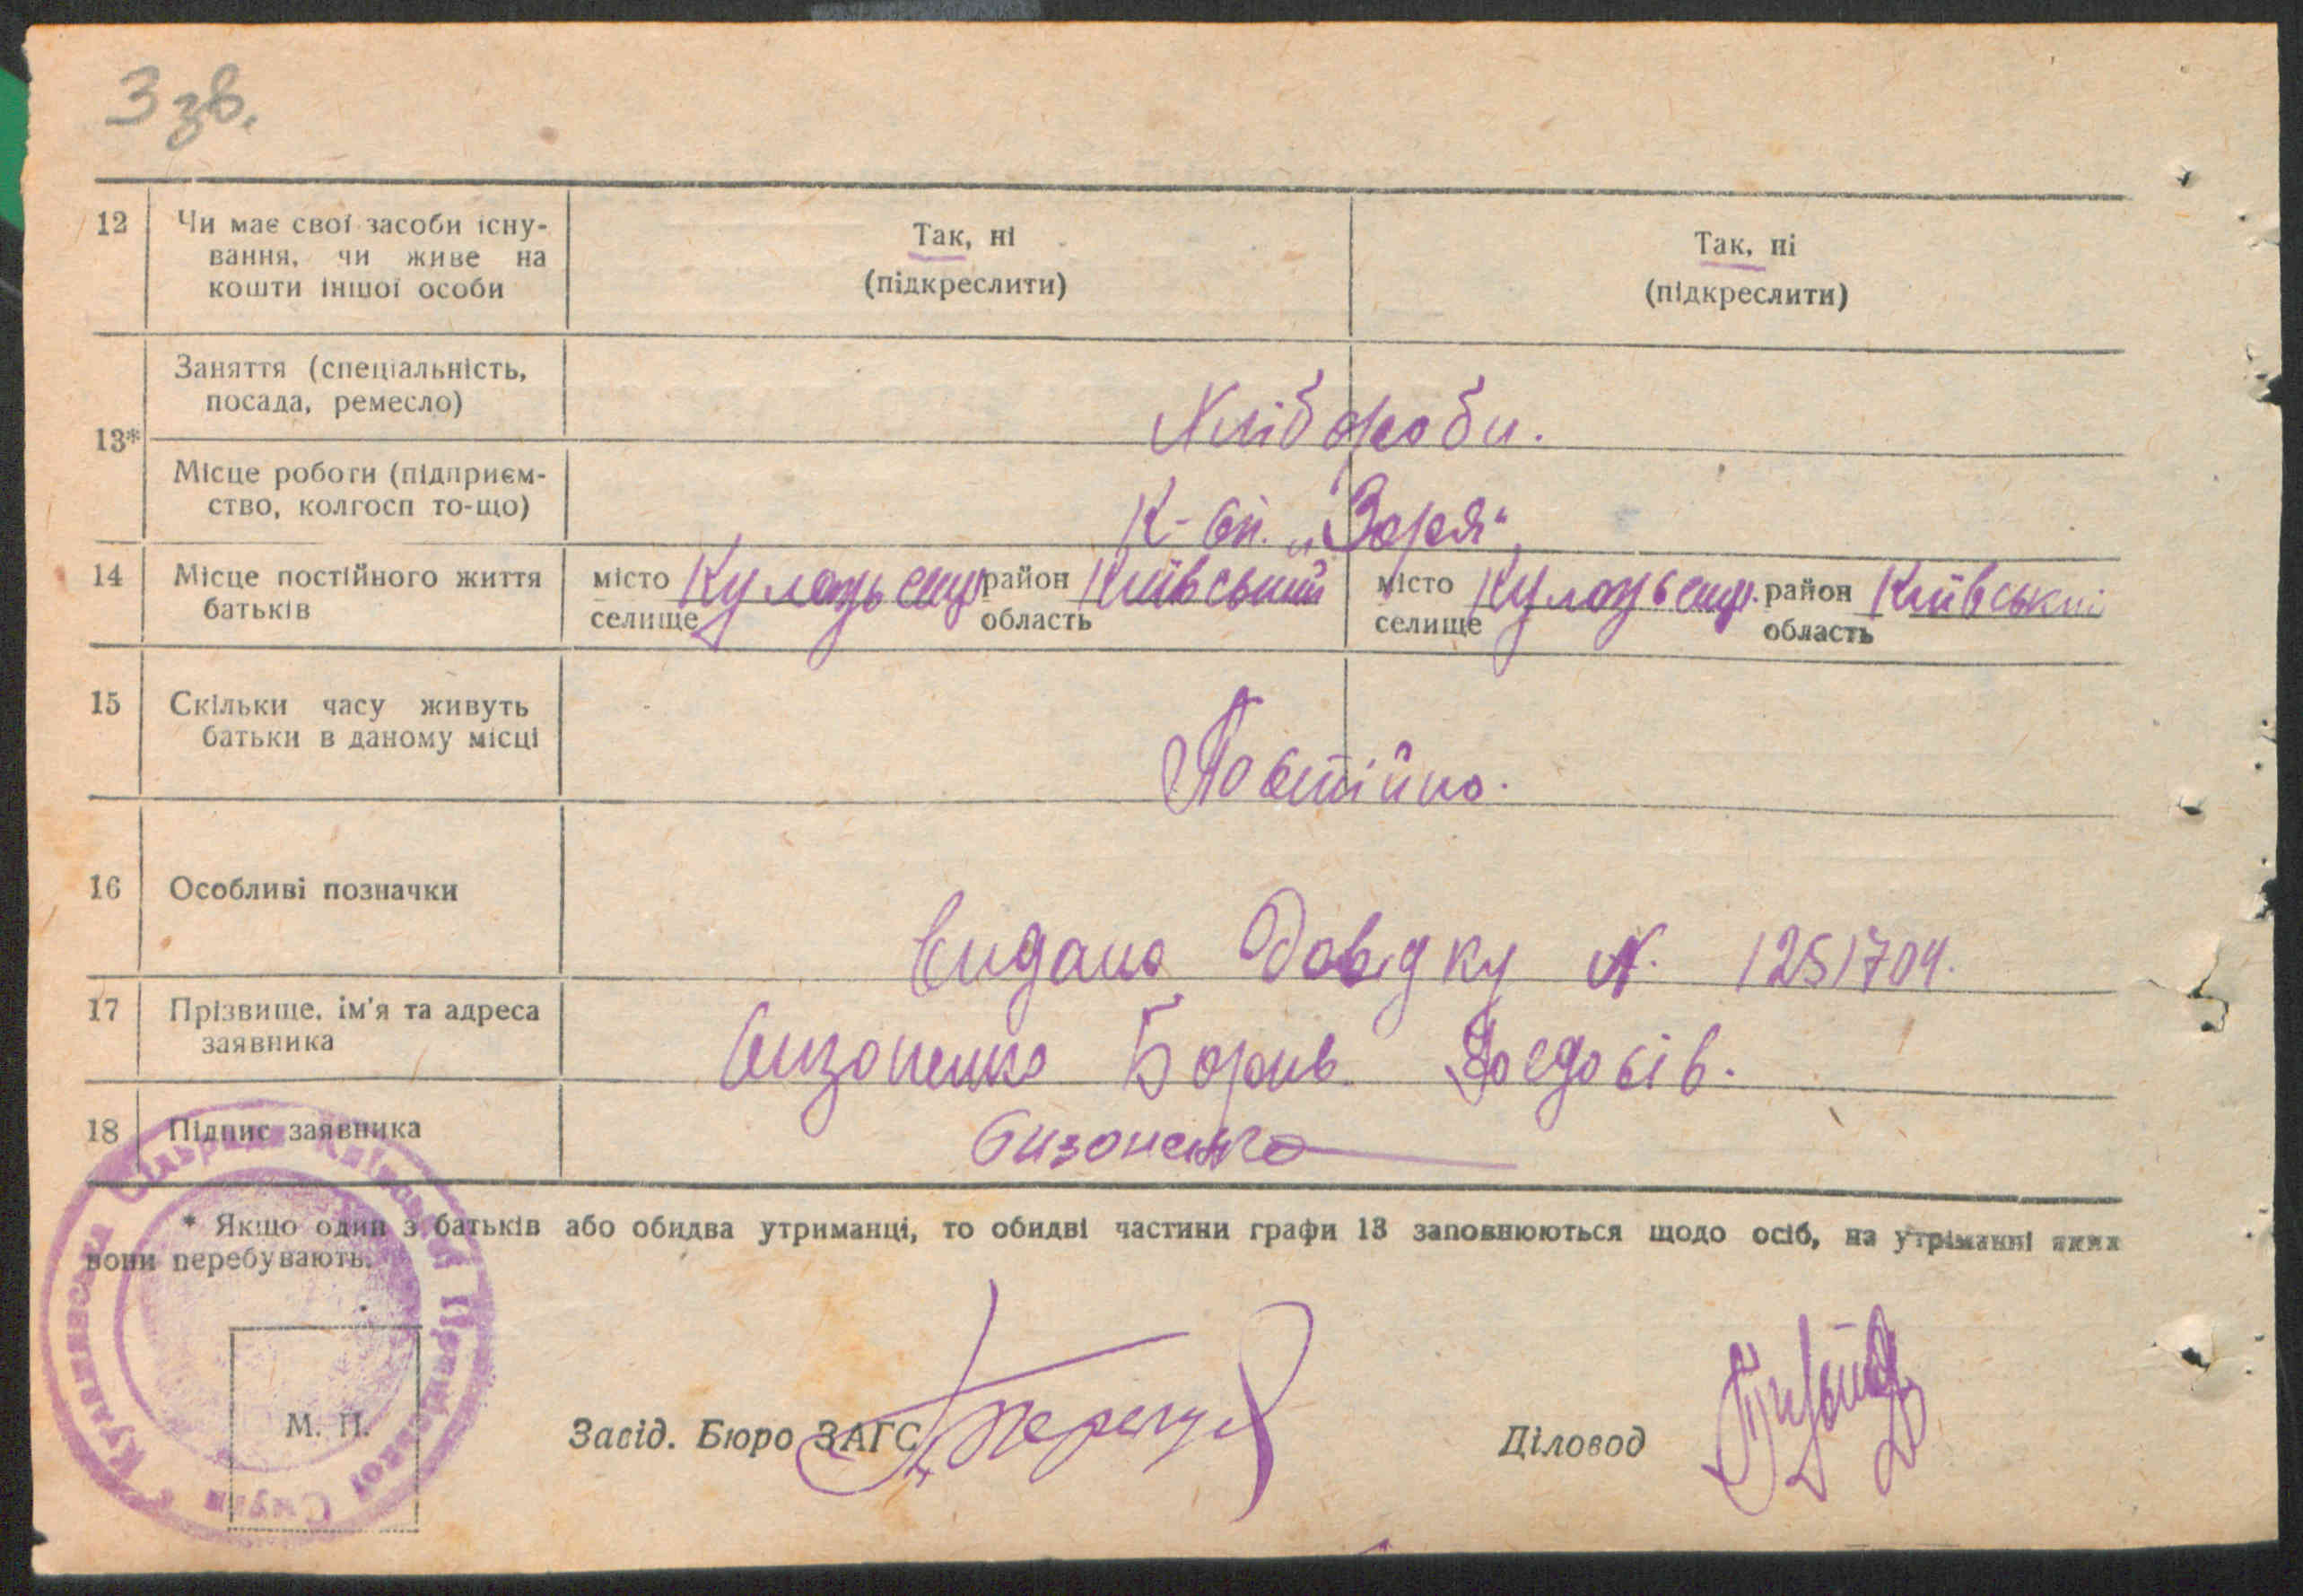 3 зв.
12 Чи має свої засоби існу-
вання, чи живе на
кошти іншої особи
Так, ні
(підкреслити)
Так, ні
(підкреслити)
13*
Заняття (спеціальність,
посада, ремесло)
Хлібороби.
Місце роботи (підприєм-
ство, колгосп то-що)
К-сп. „Зоря“
14 Місце постійного життя
батьків
місто
селище
район Київський
область
місто
селище
район Київський
область
15 Скільки часу живуть
батьки в даному місці
Постійно.
16 Особливі позначки
Видано Довідку N. 1251704.
17 Прізвище, ім'я та адреса
заявника
Сизоненко Борив Фоедосів.
18 Підпис заявника
Сизоненко
* Якщо один з батьків або обидва утриманці, то обидві частини графи 13 заповнюються щодо осіб, на утріманні яких
вони перебувають.
М. П.
Завід. Бюро ЗАГС
Діловод
Сільрада Київської Приміської Смуги